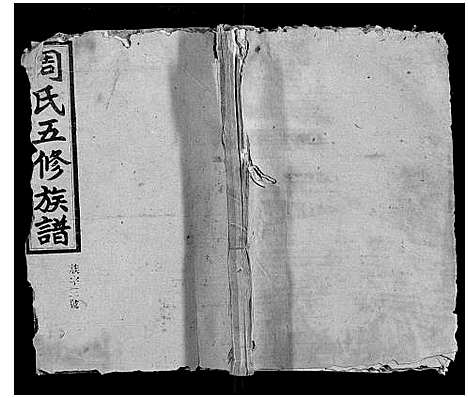 周氏五修族譜
族字二號